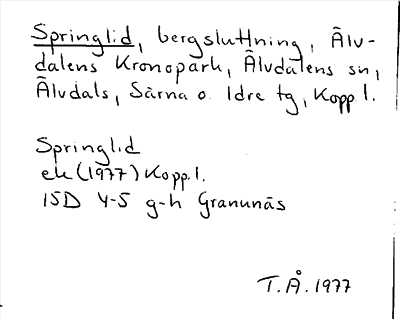 Springlid, bergsluttning, Älv-
dalens Kronopark, Älvdalens sn,
Älvdals, Särna o. Idre tg, Kopp. l.
Springlid
ek (1977) Kopp. l.
15D 4-5 g-h Granunäs
T.Å. 1977